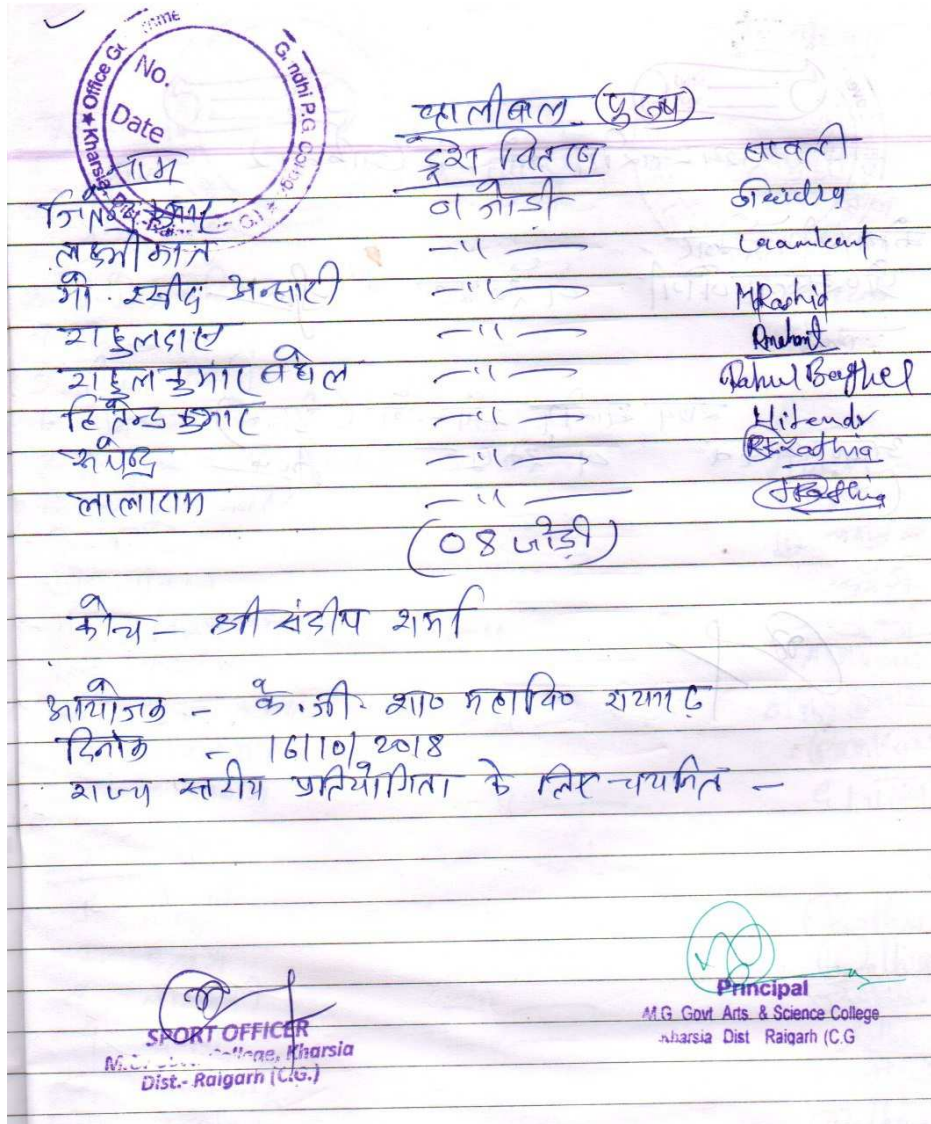 No.
Date
व्हालीबाल (पुरुष)
नाम ड्रेश वितरण पावती
जितेन्द्र कुमार 01 जोडी
लक्ष्मीकान्त —"— Laxmikant
मो. रशीद अन्सारी —"— MRashid
राहुलदास —"—
राहुल कुमार बघेल —"— Rahul Baghel
हितेन्द्र कुमार —"— Hitendr
रूपेन्द्र —"— RKRathia
लालाराम —"—
(08 जोडी)
कोच — श्री संदीप शर्मा
आयोजक — के.जी. शा० महावि० रायगढ़
दिनांक — 16/10/2018
राज्य स्तरीय प्रतियोगिता के लिए चयनित —
SPORT OFFICER
College, Kharsia
Dist.- Raigarh (C.G.)
Principal
M.G. Govt. Arts. & Science College
Kharsia Dist Raigarh (C.G